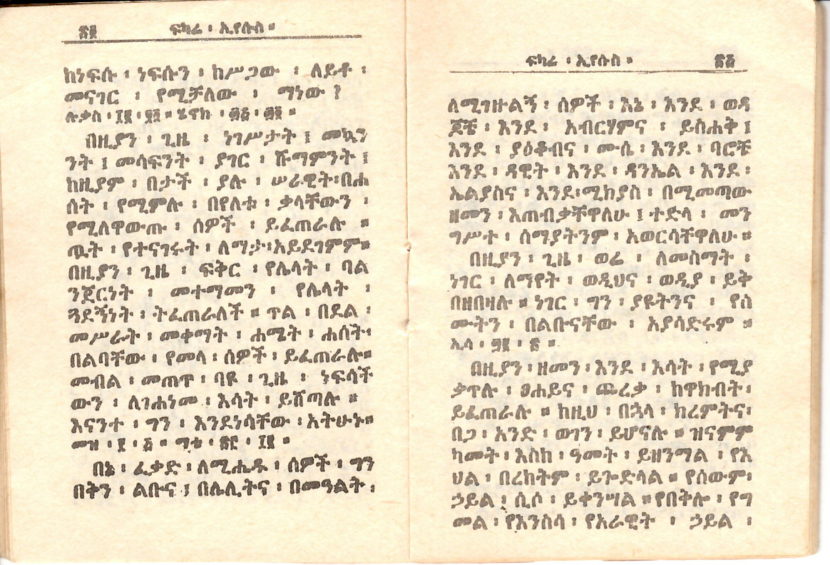 ፳፬ ፍካሬ ፡ ኢየሱስ ።
ከነፍሱ ፡ ነፍሱን ፡ ከሥጋው ፡ ለይቶ ፡
መናገር ፡ የሚቻለው ፡ ማነው ?
ሉቃስ ፡
በዚያን ፡ ጊዜ ፡ ነገሥታት ፤ መኳን
ንት ፤ መሳፍንት ፡ ያገር ፡ ሹማምንት ፤
ከዚያም ፡ በታች ፡ ያሉ ፡ ሠራዊት፡በሐ
ሰት ፡ የሚምሉ ፡ በየለቱ ፡ ቃላቸውን ፡
የሚለዋውጡ ፡ ሰዎች ፡ ይፈጠራሉ ።
ጧት ፡ የተናገሩት ፡ ለማታ፡አይደገምም።
በዚያን ፡ ጊዜ ፡ ፍቅር ፡ የሌላት ፡ ባል
ንጀርነት ፡ መተማመን ፡ የሌላት ፡
ጓደኝነት ፡ ትፈጠራለች ። ጥል ፡ በደል ፡
መሥራት ፡ መቀማት ፡ ሐሜት ፡ ሐሰት፡
በልባቸው ፡ የመላ ፡ ሰዎች ፡ ይፈጠራሉ።
መብል ፡ መጠጥ ፡ ባዩ ፡ ጊዜ ፡ ነፍሳች
ውን ፡ ለገሐነመ ፡ እሳት ፡ ይሸጣሉ ።
እናንተ ፡ ግን ፡ እንደነሳቸው ፡ አትሁኑ።
መዝ ፡ ፤ ፡ ፭ ። ማቴ ፡
በኔ ፡ ፈቃድ ፡ ለሚሔዱ ፡ ሰዎች ፡ ግን
በቅን ፡ ልቡና ፤ በሌሊትና ፡ በመዓልት ፡
ፍካሬ ፡ ኢየሱስ ። ፳፭
ለሚገዙልኝ ፡ ሰዎች ፡ እኔ ፡ እንደ ፡ ወዳ
ጆቼ ፡ እንደ ፡ አብርሃምና ፡ ይስሐቅ ፤
እንደ ፡ ያዕቆብና ፡ ሙሴ ፡ እንደ ፡ ባሮቼ
እንደ ፡ ዳዊት ፡ እንደ ፡ ዳንኤል ፡ እንደ ፡
ኤልያስና ፡ እንደ፡ሚክያስ ፡ በሚመጣው
ዘመን ፡ እጠብቃቸዋለሁ ፤ ተድላ ፡ መን
ግሥተ ፡ ሰማያትንም ፡ አወርሳቸዋለሁ ።
በዚያን ፡ ጊዜ ፡ ወሬ ፡ ለመስማት ፡
ነገር ፡ ለማየት ፡ ወዲህና ፡ ወዲያ ፡ ይቅ
በዘበዛሉ ። ነገር ፡ ግን ፡ ያዩትንና ፡ የሰ
ሙትን ፡ በልቡናቸው ፡ አያሳድሩም ።
ኢሳ ፡
በዚያን ፡ ዘመን ፡ እንደ ፡ እሳት ፡ የሚያ
ቃጥሉ ፡ ፀሐይና ፡ ጨረቃ ፡ ከዋክብት ፡
ይፈጠራሉ ። ከዚህ ፡ በኋላ ፡ ከረምትና፡
በጋ ፡ አንድ ፡ ወገን ፡ ይሆናሉ ። ዝናምም
ካመት ፡ እስከ ፡ ዓመት ፡ ይዘንማል ፡ የእ
ህል ፡ በረከትም ፡ ይጐድላል ። የሰውም፡
ኃይል ፤ ሲሶ ፡ ይቀንሣል ። የበቅሎ ፡ የግ
መል ፡ የእንስሳ ፡ የአራዊት ፡ ኃይል ፡